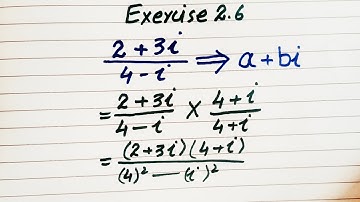 Exercise 2.6
(2+3i)/(4-i) ⇒ a+bi
= (2+3i)/(4-i) × (4+i)/(4+i)
= (2+3i)(4+i)/((4)² — (i)²)